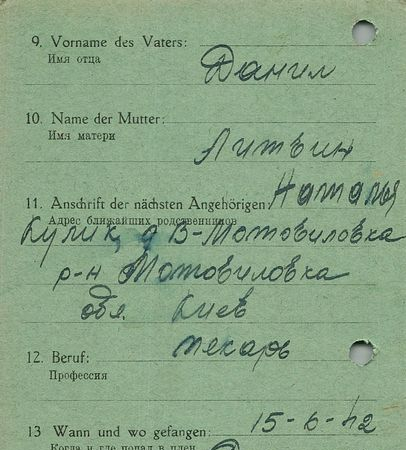 9. Vorname des Vaters:
Имя отца
Данил
10. Name der Mutter:
Имя матери
Литвин
11. Anschrift der nächsten Angehörigen:
Наталья
Адрес ближайших родственников
Кулик, д В-Мотовиловка
р-н Мотовиловка
обл. Киев
12. Beruf:
пекарь
Профессия
13 Wann und wo gefangen: 15-6-42
Когда и где попал в плен